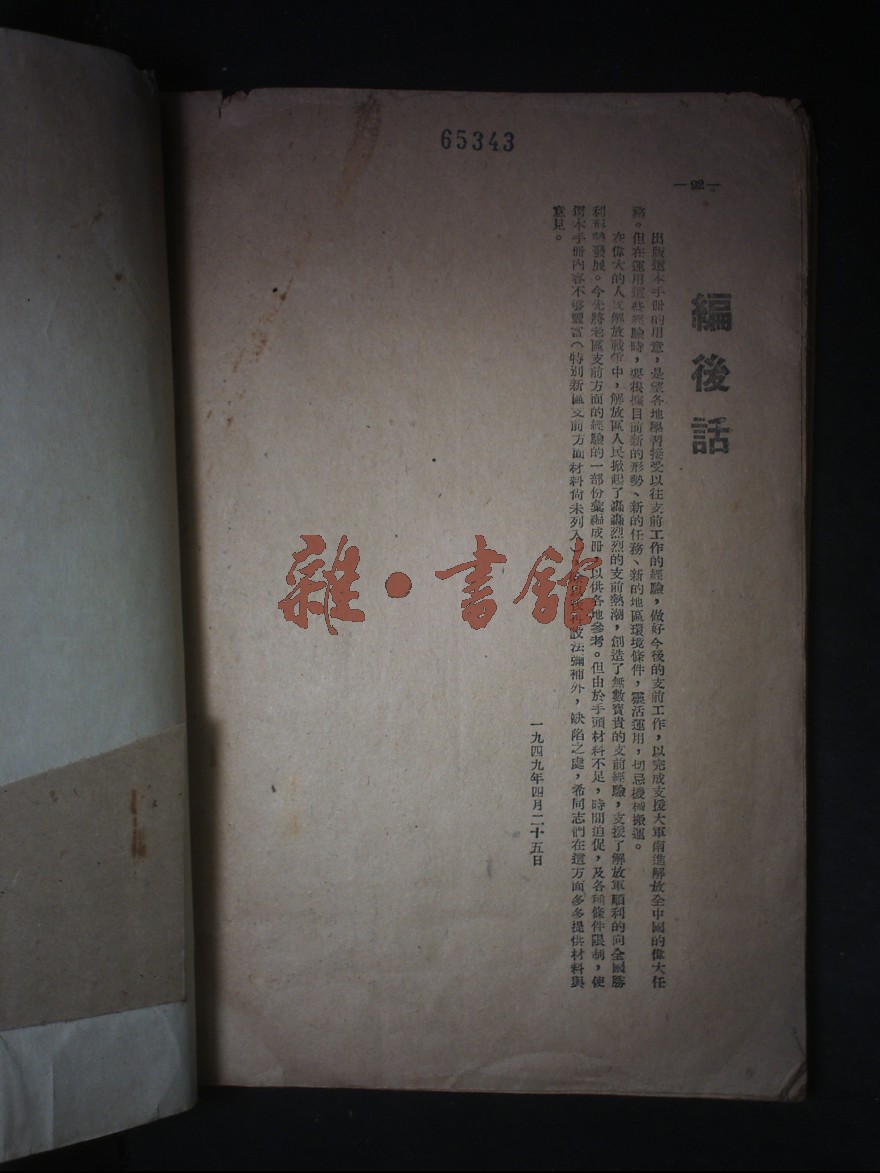 65343
—92—
編後話
出版這本手冊的用意，是望各地學習接受以往支前工作的經驗，做好今後的支前工作，以完成支援大軍南進解放全中國的偉大任
務。但在運用這些經驗時，要根據目前新的形勢、新的任務、新的地區環境條件，靈活運用，切忌機械搬運。
在偉大的人民解放戰爭中，解放區人民掀起了轟轟烈烈的支前熱潮，創造了無數寶貴的支前經驗，支援了解放軍順利的向全國勝
利形勢發展。今先將老區支前方面的經驗的一部份彙編成冊，以供各地參考。但由於手頭材料不足，時間迫促，及各種條件限制，使
這本手冊內容不够豐富（特別新區支前方面材料尚未列入）設法彌補外，缺陷之處，希同志們在這方面多多提供材料與
意見。
一九四九年四月二十五日
雜·書館